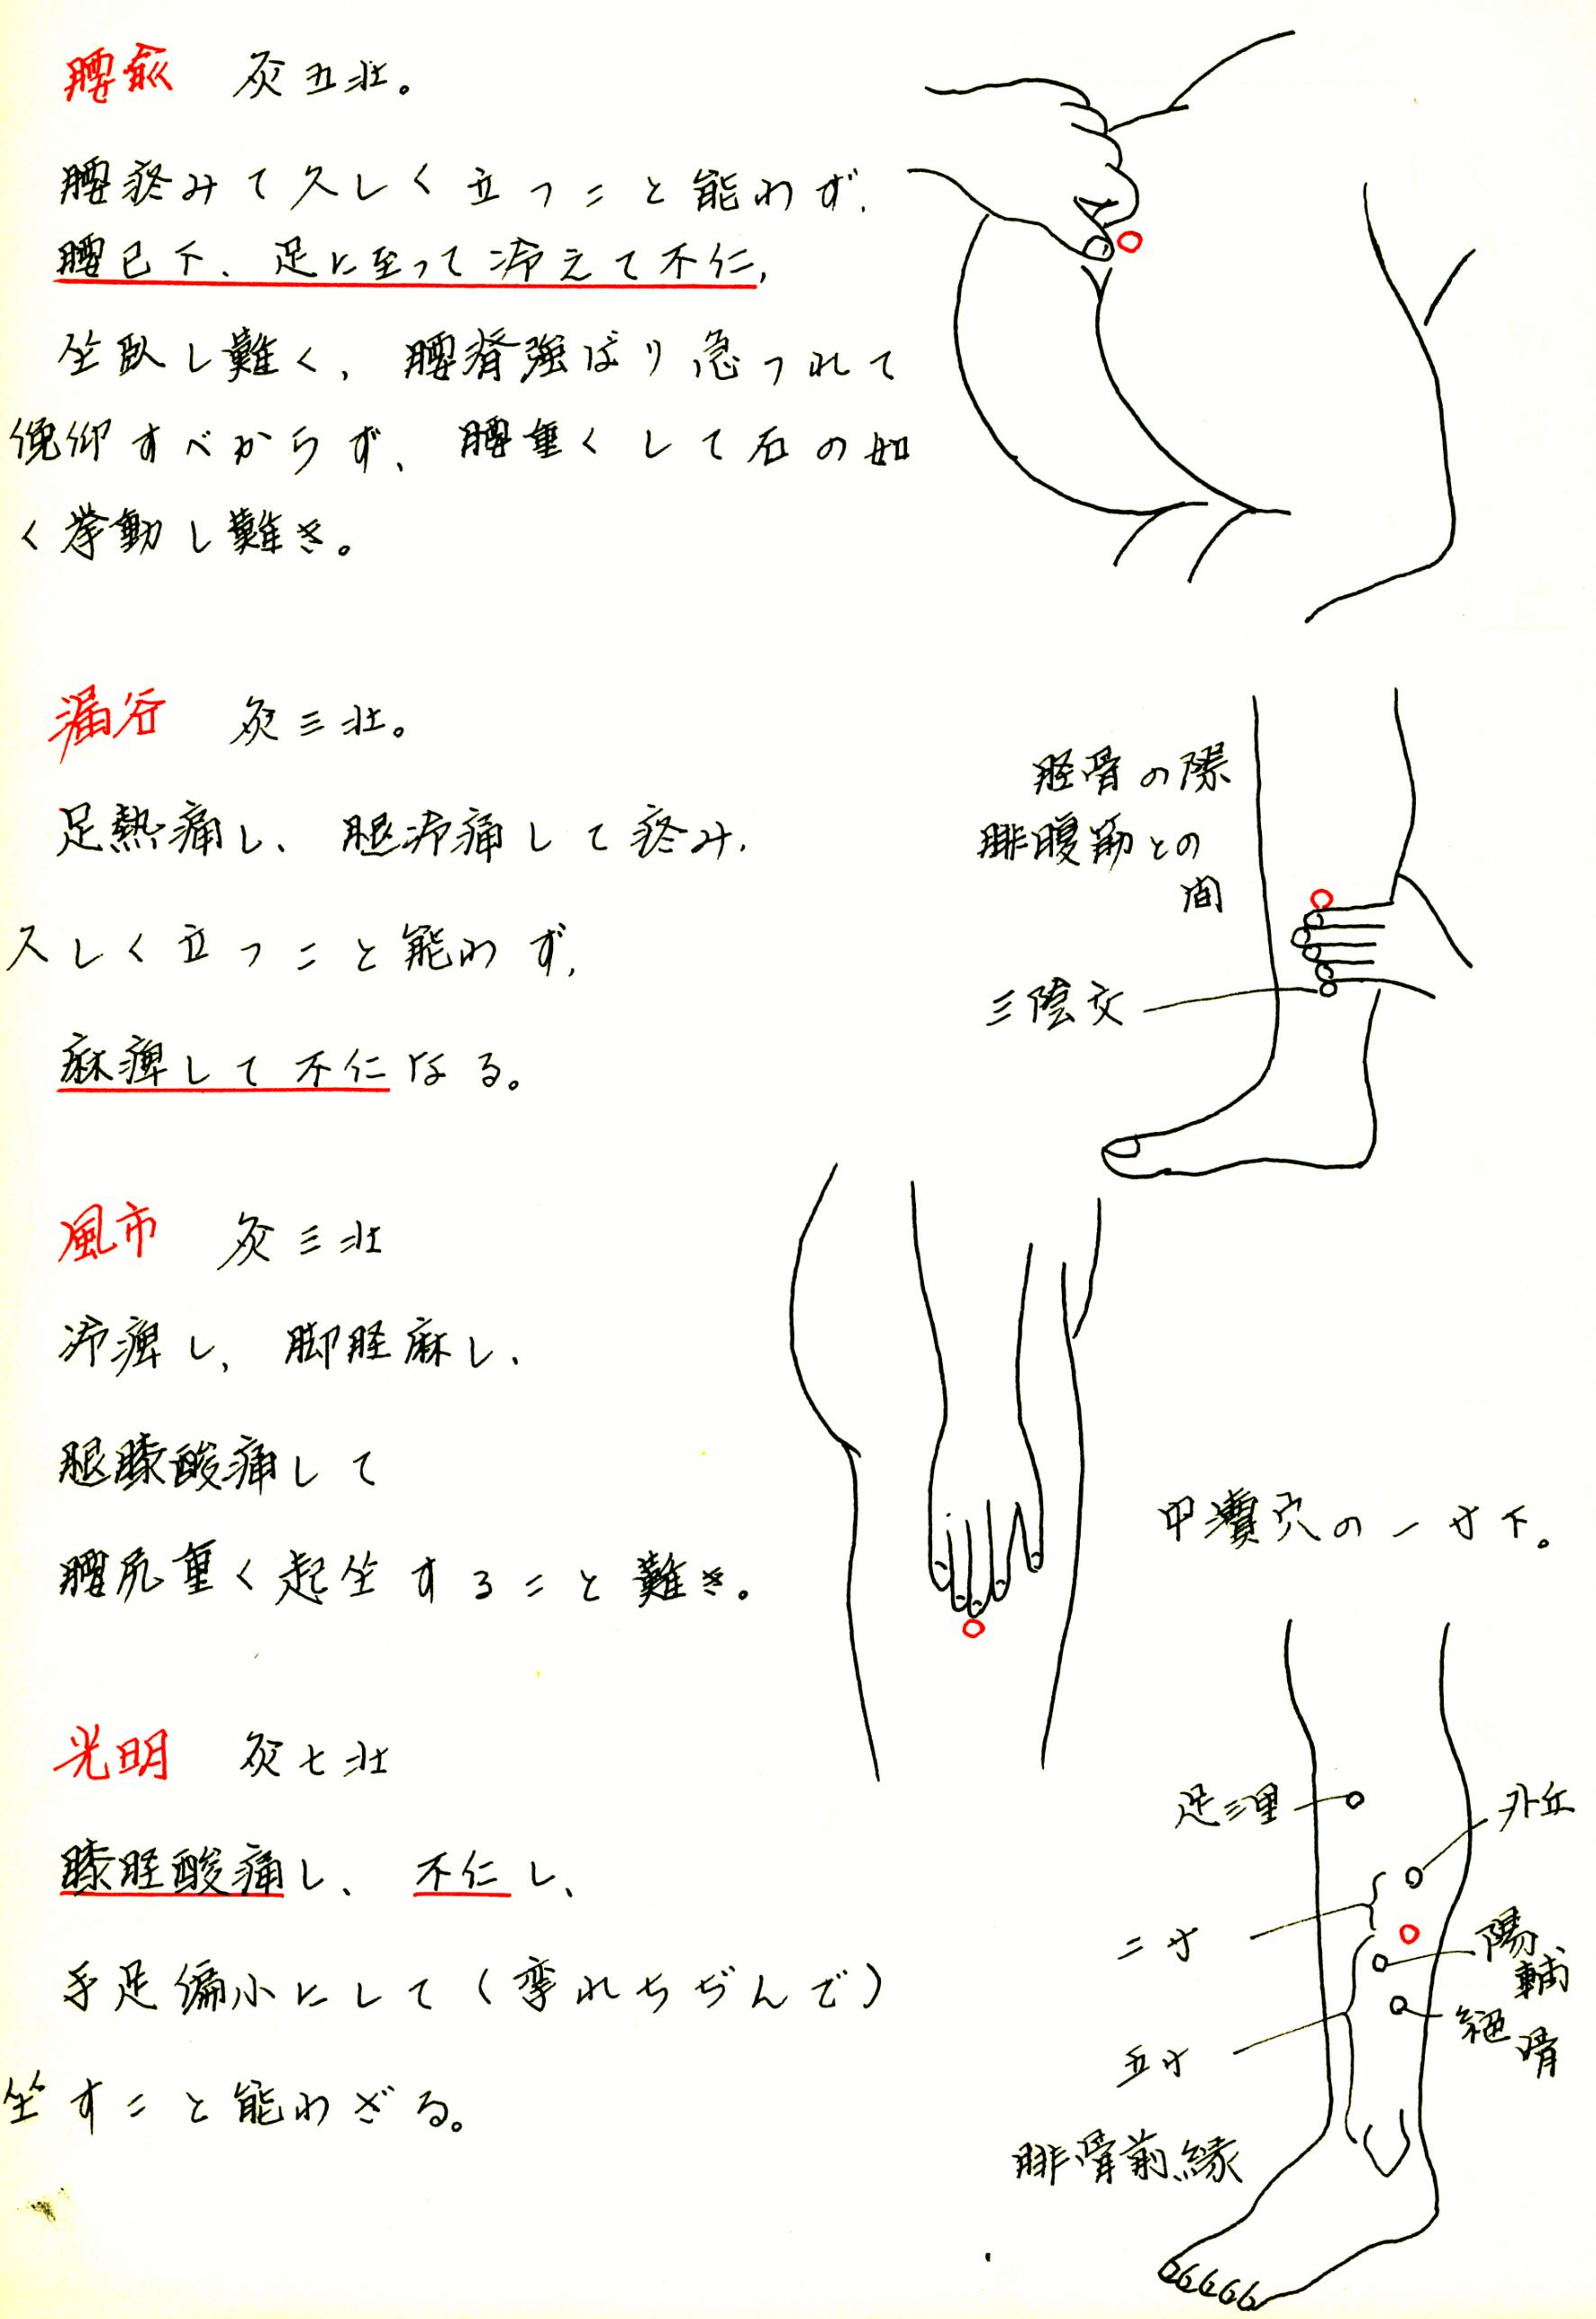 腰兪　灸五壮。
腰疼みて久しく立つこと能わず、
腰已下、足に至って冷えて不仁、
坐臥し難く、腰脊強ばり急つれて
俛仰すべからず、腰重くして石の如
く挙動し難き。
漏谷　灸三壮。
足熱痛し、腿冷痛して疼み、
久しく立つこと能わず、
麻痺して不仁なる。
脛骨の際
腓腹筋との
間
三陰交
風市　灸三壮
冷痺し、脚脛麻し、
腿膝酸痛して
腰尻重く起坐すること難き。
中瀆穴の一寸下。
光明　灸七壮
膝脛酸痛し、不仁し、
手足偏小にして（攣れちぢんで）
坐すこと能わざる。
足三里
外丘
二寸
陽輔
絶骨
五寸
腓骨前縁